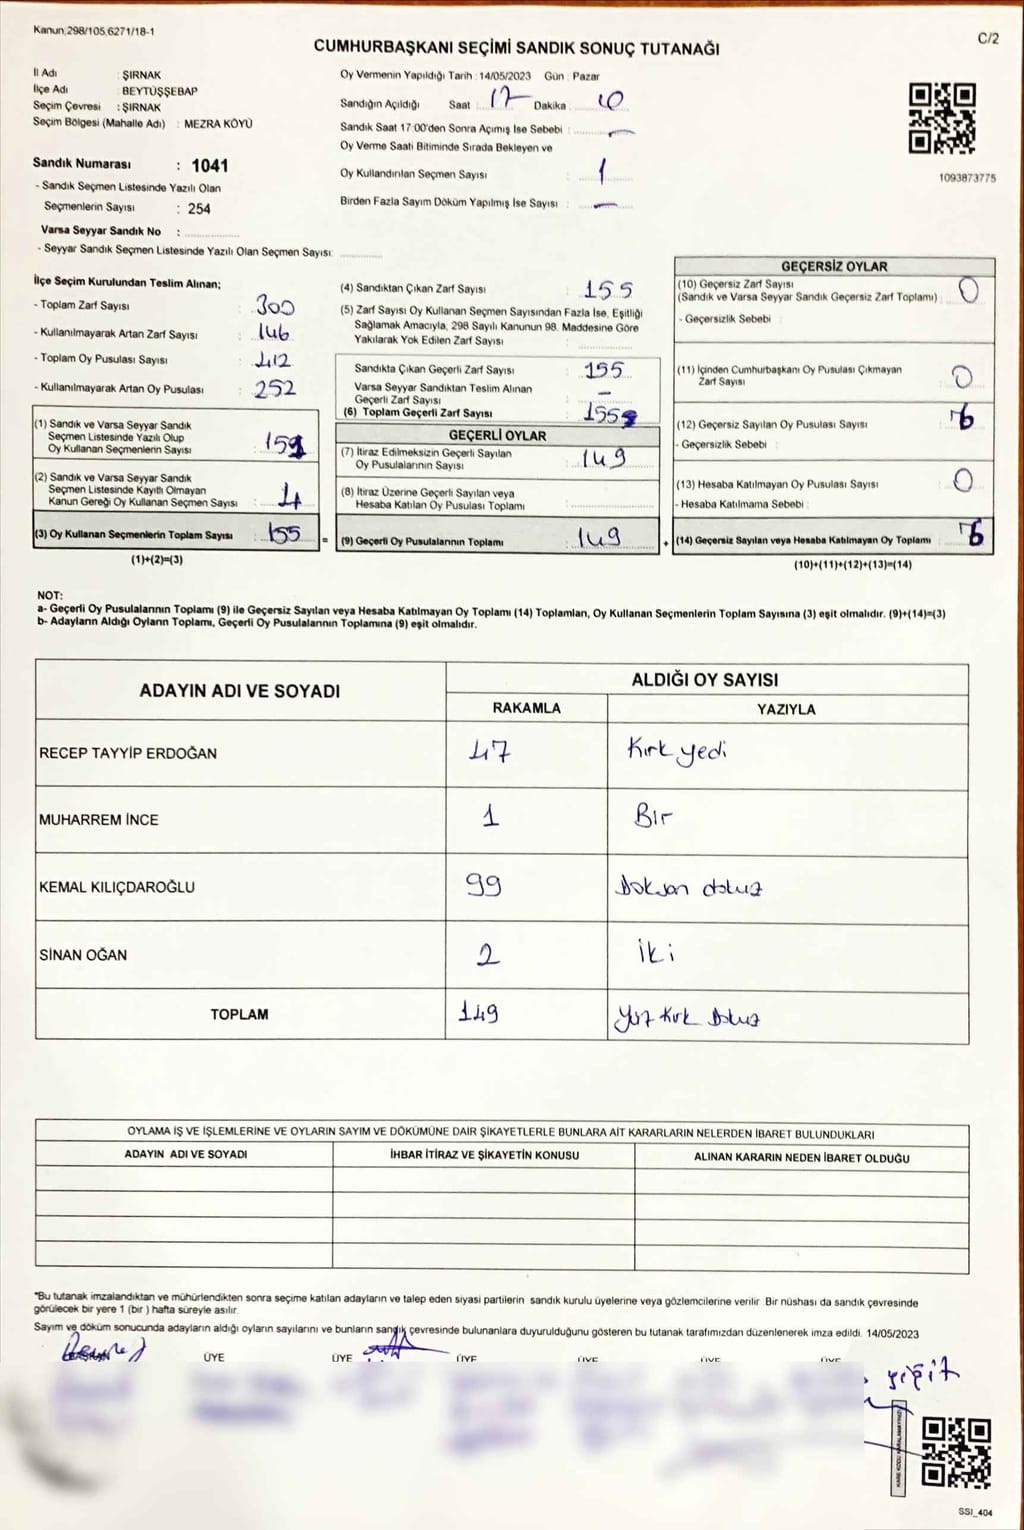 Kanun,298/105,6271/18-1
C/2
CUMHURBAŞKANI SEÇİMİ SANDIK SONUÇ TUTANAĞI
İl Adı : ŞIRNAK
İlçe Adı : BEYTÜŞŞEBAP
Seçim Çevresi : ŞIRNAK
Seçim Bölgesi (Mahalle Adı) : MEZRA KÖYÜ
Sandık Numarası : 1041
- Sandık Seçmen Listesinde Yazılı Olan
Seçmenlerin Sayısı : 254
Varsa Seyyar Sandık No :
- Seyyar Sandık Seçmen Listesinde Yazılı Olan Seçmen Sayısı:
Oy Vermenin Yapıldığı Tarih : 14/05/2023 Gün : Pazar
Sandığın Açıldığı Saat : 17 Dakika : 10
Sandık Saat 17:00'den Sonra Açımış İse Sebebi : -
Oy Verme Saati Bitiminde Sırada Bekleyen ve
Oy Kullandırılan Seçmen Sayısı : 1
Birden Fazla Sayım Döküm Yapılmış İse Sayısı : -
1093873775
İlçe Seçim Kurulundan Teslim Alınan;
- Toplam Zarf Sayısı : 300
- Kullanılmayarak Artan Zarf Sayısı : 146
- Toplam Oy Pusulası Sayısı : 412
- Kullanılmayarak Artan Oy Pusulası : 252
(1) Sandık ve Varsa Seyyar Sandık
Seçmen Listesinde Yazılı Olup
Oy Kullanan Seçmenlerin Sayısı : 151
(2) Sandık ve Varsa Seyyar Sandık
Seçmen Listesinde Kayıtlı Olmayan
Kanun Gereği Oy Kullanan Seçmen Sayısı : 4
(3) Oy Kullanan Seçmenlerin Toplam Sayısı : 155
(1)+(2)=(3)
(4) Sandıktan Çıkan Zarf Sayısı : 155
(5) Zarf Sayısı Oy Kullanan Seçmen Sayısından Fazla İse, Eşitliği
Sağlamak Amacıyla, 298 Sayılı Kanunun 98. Maddesine Göre
Yakılarak Yok Edilen Zarf Sayısı :
Sandıkta Çıkan Geçerli Zarf Sayısı : 155
Varsa Seyyar Sandıktan Teslim Alınan
Geçerli Zarf Sayısı : -
(6) Toplam Geçerli Zarf Sayısı : 155
GEÇERLİ OYLAR
(7) İtiraz Edilmeksizin Geçerli Sayılan
Oy Pusulalarının Sayısı : 149
(8) İtiraz Üzerine Geçerli Sayılan veya
Hesaba Katılan Oy Pusulası Toplamı :
= (9) Geçerli Oy Pusulalarının Toplamı : 149
GEÇERSİZ OYLAR
(10) Geçersiz Zarf Sayısı
(Sandık ve Varsa Seyyar Sandık Geçersiz Zarf Toplamı) : 0
- Geçersizlik Sebebi :
(11) İçinden Cumhurbaşkanı Oy Pusulası Çıkmayan
Zarf Sayısı : 0
(12) Geçersiz Sayılan Oy Pusulası Sayısı : 6
- Geçersizlik Sebebi :
(13) Hesaba Katılmayan Oy Pusulası Sayısı : 0
- Hesaba Katılmama Sebebi :
+ (14) Geçersiz Sayılan veya Hesaba Katılmayan Oy Toplamı : 6
(10)+(11)+(12)+(13)=(14)
NOT:
a- Geçerli Oy Pusulalarının Toplamı (9) ile Geçersiz Sayılan veya Hesaba Katılmayan Oy Toplamı (14) Toplamları, Oy Kullanan Seçmenlerin Toplam Sayısına (3) eşit olmalıdır. (9)+(14)=(3)
b- Adayların Aldığı Oyların Toplamı, Geçerli Oy Pusulalarının Toplamına (9) eşit olmalıdır.
ADAYIN ADI VE SOYADI
ALDIĞI OY SAYISI
RAKAMLA YAZIYLA
RECEP TAYYİP ERDOĞAN 47 Kırk yedi
MUHARREM İNCE 1 Bir
KEMAL KILIÇDAROĞLU 99 Doksan dokuz
SİNAN OĞAN 2 İki
TOPLAM 149 Yüz Kırk Dokuz
OYLAMA İŞ VE İŞLEMLERİNE VE OYLARIN SAYIM VE DÖKÜMÜNE DAİR ŞİKAYETLERLE BUNLARA AİT KARARLARIN NELERDEN İBARET BULUNDUKLARI
ADAYIN ADI VE SOYADI İHBAR İTİRAZ VE ŞİKAYETİN KONUSU ALINAN KARARIN NEDEN İBARET OLDUĞU
*Bu tutanak imzalandıktan ve mühürlendikten sonra seçime katılan adayların ve talep eden siyasi partilerin sandık kurulu üyelerine veya gözlemcilerine verilir Bir nüshası da sandık çevresinde
görülecek bir yere 1 (bir ) hafta süreyle asılır.
Sayım ve döküm sonucunda adayların aldığı oyların sayılarını ve bunların sandık çevresinde bulunanlara duyurulduğunu gösteren bu tutanak tarafımızdan düzenlenerek imza edildi. 14/05/2023
BAŞKAN ÜYE ÜYE ÜYE ÜYE ÜYE ÜYE
yiğit
KARE KODU KARALAMAYINIZ!
SSI_404